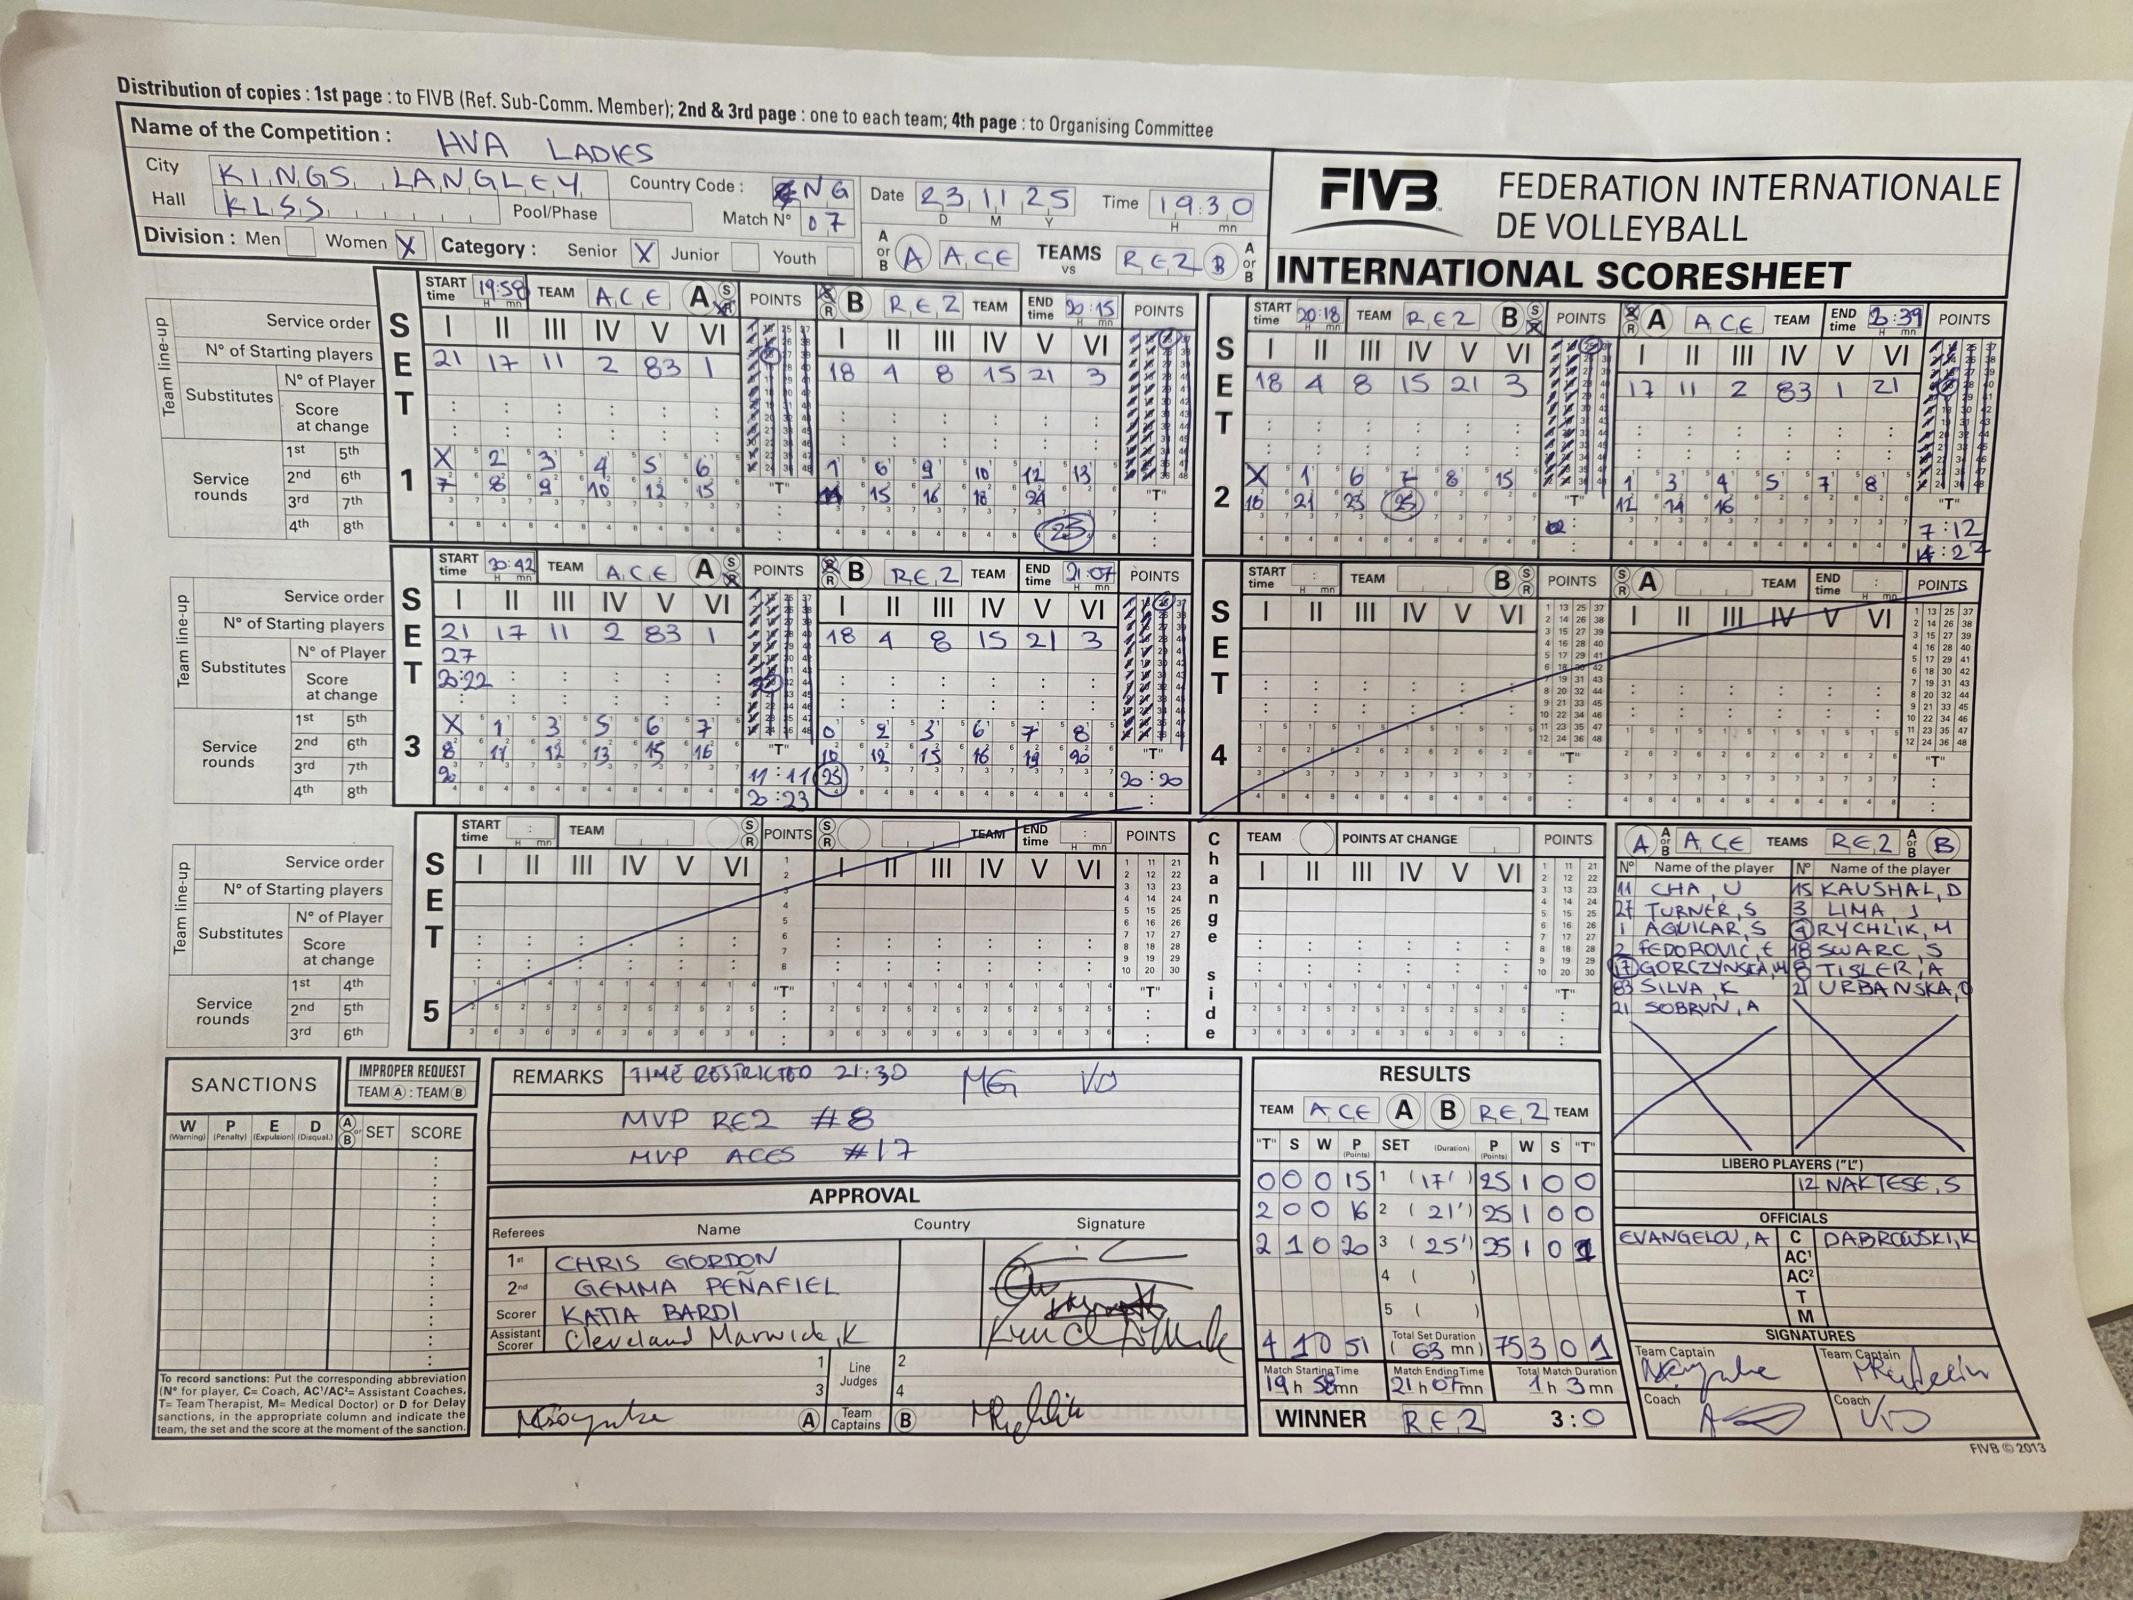 Distribution of copies : 1st page : to FIVB (Ref. Sub-Comm. Member); 2nd & 3rd page : one to each team; 4th page : to Organising Committee
Name of the Competition : HVA LADIES
City KINGS LANGLEY Country Code : ENG Date 23 11 25 Time 19:30
D M Y H mn
Hall KLSS Pool/Phase Match N° 07
Division : Men Women X Category : Senior X Junior Youth A or B A ACE TEAMS vs RE2 B A or B
FIVB FEDERATION INTERNATIONALE
DE VOLLEYBALL
INTERNATIONAL SCORESHEET
SET 1
START time 19:58 TEAM ACE A S R POINTS S R B RE2 TEAM END time 20:15 POINTS
Service order I II III IV V VI I II III IV V VI
Team line-up
N° of Starting players 21 17 11 2 83 1 18 4 8 15 21 3
Substitutes N° of Player
Score at change
Service rounds
1st 5th X 2 3 4 5 6 1 6 9 10 12 13
2nd 6th 7 8 9 10 12 15 15 16 18 24
3rd 7th "T" "T"
4th 8th 25
SET 2
START time 20:18 TEAM RE2 B S R POINTS S R A ACE TEAM END time 20:39 POINTS
I II III IV V VI I II III IV V VI
18 4 8 15 21 3 17 11 2 83 1 21
X 1 6 7 8 15 1 3 4 5 7 8
16 21 23 25 12 14 16
"T" "T"
7:12
SET 3
START time 20:42 TEAM ACE A S R POINTS S R B RE2 TEAM END time 21:07 POINTS
Service order I II III IV V VI I II III IV V VI
Team line-up
N° of Starting players 21 17 11 2 83 1 18 4 8 15 21 3
Substitutes N° of Player 27
Score at change 20:22
Service rounds
1st 5th X 1 3 5 6 7 0 2 3 6 7 8
2nd 6th 8 11 12 13 15 16 10 12 15 16 19 20
3rd 7th 20 "T" 11:11 25 "T" 20:20
4th 8th 20:23
SET 4
START time TEAM B S R POINTS S R A TEAM END time POINTS
I II III IV V VI I II III IV V VI
"T" "T"
SET 5
START time TEAM S R POINTS S R TEAM END time POINTS
Service order I II III IV V VI I II III IV V VI
Team line-up
N° of Starting players
Substitutes N° of Player
Score at change
Service rounds
1st 4th
2nd 5th
3rd 6th
"T" "T"
Change side
TEAM POINTS AT CHANGE POINTS
I II III IV V VI
"T"
A A or B ACE TEAMS RE2 A or B B
N° Name of the player N° Name of the player
11 CHA, U 15 KAUSHAL, D
27 TURNER, S 3 LIMA, J
1 AGUILAR, S RYCHLIK, M
2 FEDOROVIC, E 18 SWARC, S
17 GORCZYNSKA, M 8 TISLER, A
83 SILVA, K 21 URBANSKA, O
21 SOBRUN, A
LIBERO PLAYERS ("L")
12 NAKTESE, S
OFFICIALS
EVANGELOU, A C DABROWSKI, K
AC¹
AC²
T
M
SIGNATURES
Team Captain Team Captain
Coach Coach
SANCTIONS IMPROPER REQUEST
TEAM A : TEAM B
W (Warning) P (Penalty) E (Expulsion) D (Disqual.) A or B SET SCORE
To record sanctions: Put the corresponding abbreviation
(N° for player, C= Coach, AC¹/AC²= Assistant Coaches,
T= Team Therapist, M= Medical Doctor) or D for Delay
sanctions, in the appropriate column and indicate the
team, the set and the score at the moment of the sanction.
REMARKS TIME RESTRICTED 21:30 MG VD
MVP RE2 #8
MVP ACES #17
APPROVAL
Referees Name Country Signature
1st CHRIS GORDON
2nd GEMMA PEÑAFIEL
Scorer KATIA BARDI
Assistant Scorer Cleveland Marwick, K
1 Line Judges 2
3 4
A Team Captains B
RESULTS
TEAM ACE A B RE2 TEAM
"T" S W P (Points) SET (Duration) P (Points) W S "T"
0 0 0 15 1 (17') 25 1 0 0
2 0 0 16 2 (21') 25 1 0 0
2 1 0 20 3 (25') 25 1 0 1
4 ( )
5 ( )
4 1 0 51 Total Set Duration (63 mn) 75 3 0 1
Match Starting Time 19 h 58 mn Match Ending Time 21 h 07 mn Total Match Duration 1 h 3 mn
WINNER RE2 3:0
FIVB © 2013